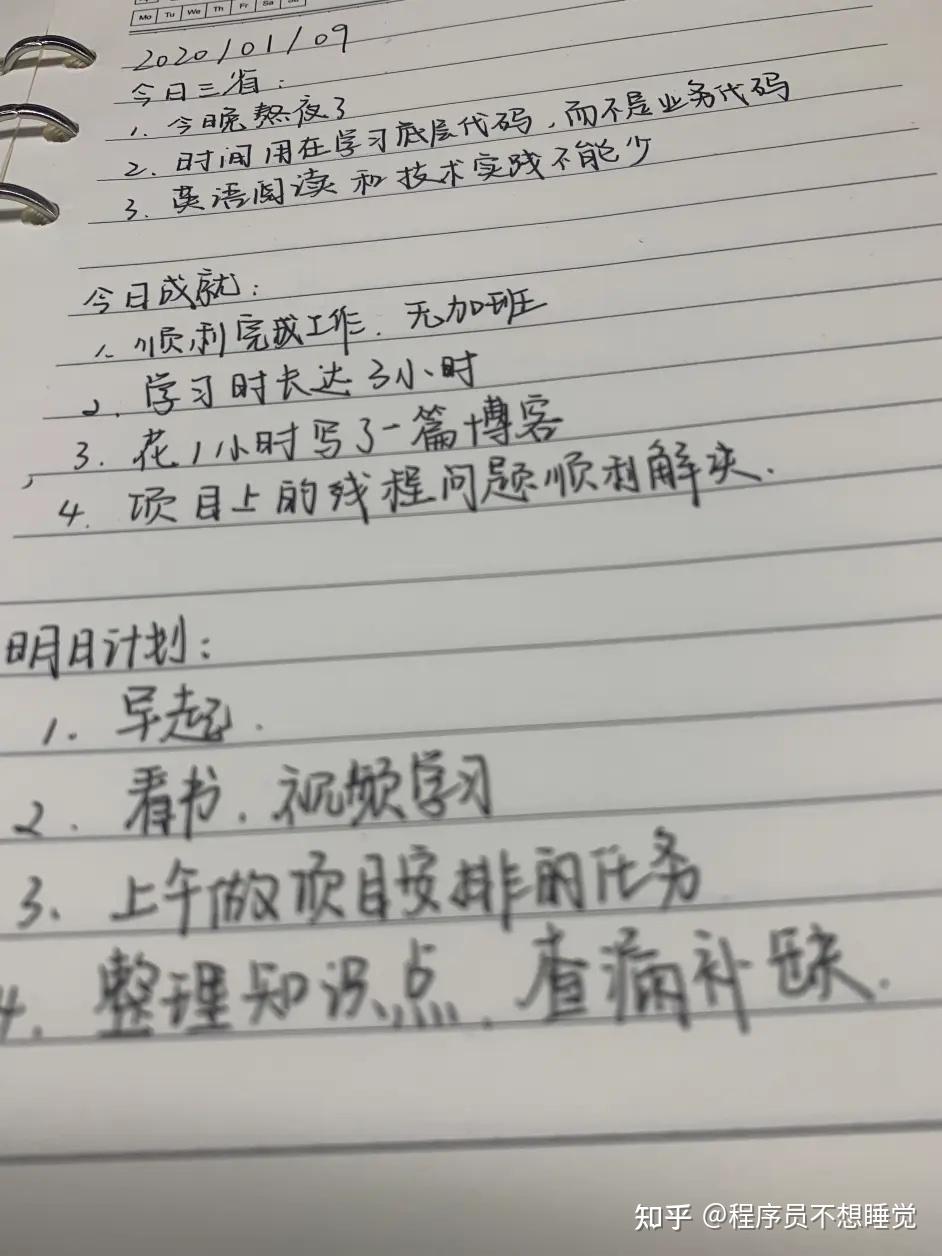 Mo Tu We Th Fr Sa Su
2020/01/09
今日三省：
1. 今晚熬夜了
2. 时间用在学习底层代码，而不是业务代码
3. 英语阅读和技术实践不能少
今日成就：
1. 顺利完成工作. 无加班
2. 学习时长达3小时
3. 花1小时写了一篇博客
4. 项目上的线程问题顺利解决.
明日计划：
1. 早起.
2. 看书. 视频学习
3. 上午做项目安排的任务
4. 整理知识点. 查漏补缺.
知乎 @程序员不想睡觉